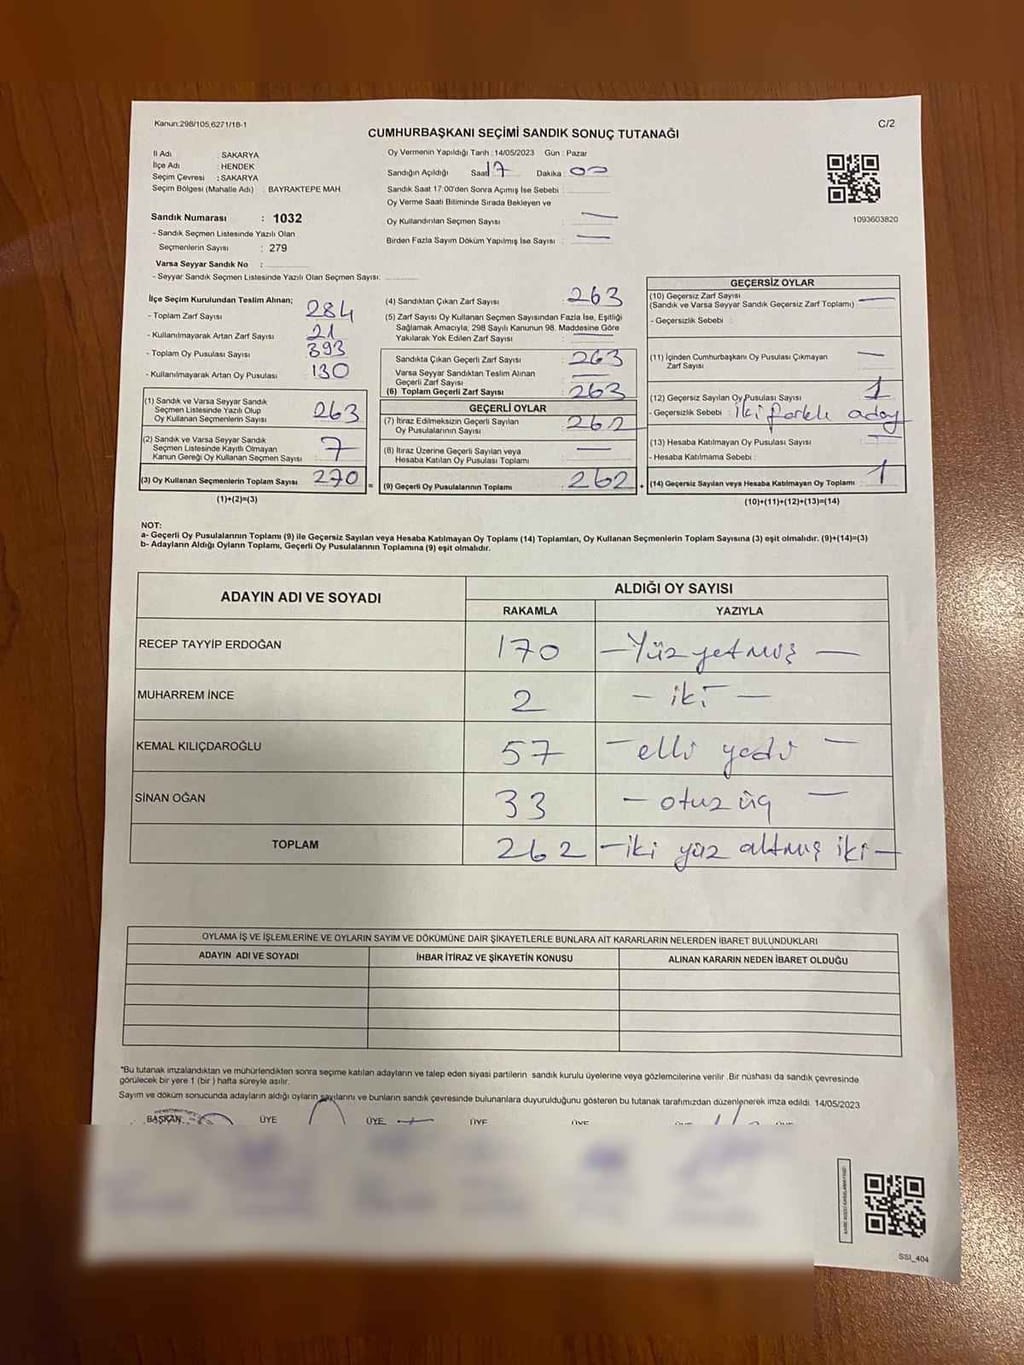 Kanun:298/105,6271/18-1
C/2
CUMHURBAŞKANI SEÇİMİ SANDIK SONUÇ TUTANAĞI
İl Adı : SAKARYA
İlçe Adı : HENDEK
Seçim Çevresi : SAKARYA
Seçim Bölgesi (Mahalle Adı) : BAYRAKTEPE MAH.
Sandık Numarası : 1032
- Sandık Seçmen Listesinde Yazılı Olan
Seçmenlerin Sayısı : 279
Varsa Seyyar Sandık No :
- Seyyar Sandık Seçmen Listesinde Yazılı Olan Seçmen Sayısı:
Oy Vermenin Yapıldığı Tarih :14/05/2023 Gün : Pazar
Sandığın Açıldığı Saat 17 Dakika : 00
Sandık Saat 17:00'den Sonra Açmış İse Sebebi :
Oy Verme Saati Bitiminde Sırada Bekleyen ve
Oy Kullandırılan Seçmen Sayısı : —
Birden Fazla Sayım Döküm Yapılmış İse Sayısı : —
1093603820
İlçe Seçim Kurulundan Teslim Alınan;
- Toplam Zarf Sayısı : 284
- Kullanılmayarak Artan Zarf Sayısı : 21
- Toplam Oy Pusulası Sayısı : 393
- Kullanılmayarak Artan Oy Pusulası : 130
(1) Sandık ve Varsa Seyyar Sandık
Seçmen Listesinde Yazılı Olup
Oy Kullanan Seçmenlerin Sayısı : 263
(2) Sandık ve Varsa Seyyar Sandık
Seçmen Listesinde Kayıtlı Olmayan
Kanun Gereği Oy Kullanan Seçmen Sayısı : 7
(3) Oy Kullanan Seçmenlerin Toplam Sayısı : 270
(1)+(2)=(3)
(4) Sandıktan Çıkan Zarf Sayısı : 263
(5) Zarf Sayısı Oy Kullanan Seçmen Sayısından Fazla İse, Eşitliği
Sağlamak Amacıyla, 298 Sayılı Kanunun 98. Maddesine Göre
Yakılarak Yok Edilen Zarf Sayısı :
Sandıkta Çıkan Geçerli Zarf Sayısı : 263
Varsa Seyyar Sandıktan Teslim Alınan
Geçerli Zarf Sayısı : —
(6) Toplam Geçerli Zarf Sayısı : 263
GEÇERLİ OYLAR
(7) İtiraz Edilmeksizin Geçerli Sayılan
Oy Pusulalarının Sayısı : 262
(8) İtiraz Üzerine Geçerli Sayılan veya
Hesaba Katılan Oy Pusulası Toplamı : —
= (9) Geçerli Oy Pusulalarının Toplamı : 262 +
GEÇERSİZ OYLAR
(10) Geçersiz Zarf Sayısı
(Sandık ve Varsa Seyyar Sandık Geçersiz Zarf Toplamı) : —
- Geçersizlik Sebebi :
(11) İçinden Cumhurbaşkanı Oy Pusulası Çıkmayan
Zarf Sayısı : —
(12) Geçersiz Sayılan Oy Pusulası Sayısı : 1
- Geçersizlik Sebebi : iki farklı aday
(13) Hesaba Katılmayan Oy Pusulası Sayısı : —
- Hesaba Katılmama Sebebi :
(14) Geçersiz Sayılan veya Hesaba Katılmayan Oy Toplamı : 1
(10)+(11)+(12)+(13)=(14)
NOT:
a- Geçerli Oy Pusulalarının Toplamı (9) ile Geçersiz Sayılan veya Hesaba Katılmayan Oy Toplamı (14) Toplamları, Oy Kullanan Seçmenlerin Toplam Sayısına (3) eşit olmalıdır. (9)+(14)=(3)
b- Adayların Aldığı Oyların Toplamı, Geçerli Oy Pusulalarının Toplamına (9) eşit olmalıdır.
ADAYIN ADI VE SOYADI ALDIĞI OY SAYISI
RAKAMLA YAZIYLA
RECEP TAYYİP ERDOĞAN 170 — Yüz yetmiş —
MUHARREM İNCE 2 — iki —
KEMAL KILIÇDAROĞLU 57 — elli yedi —
SİNAN OĞAN 33 — otuz üç —
TOPLAM 262 — iki yüz altmış iki —
OYLAMA İŞ VE İŞLEMLERİNE VE OYLARIN SAYIM VE DÖKÜMÜNE DAİR ŞİKAYETLERLE BUNLARA AİT KARARLARIN NELERDEN İBARET BULUNDUKLARI
ADAYIN ADI VE SOYADI İHBAR İTİRAZ VE ŞİKAYETİN KONUSU ALINAN KARARIN NEDEN İBARET OLDUĞU
*Bu tutanak imzalandıktan ve mühürlendikten sonra seçime katılan adayların ve talep eden siyasi partilerin sandık kurulu üyelerine veya gözlemcilerine verilir .Bir nüshası da sandık çevresinde
görülecek bir yere 1 (bir ) hafta süreyle asılır.
Sayım ve döküm sonucunda adayların aldığı oyların sayılarını ve bunların sandık çevresinde bulunanlara duyurulduğunu gösteren bu tutanak tarafımızdan düzenlenerek imza edildi. 14/05/2023
BAŞKAN ÜYE ÜYE ÜYE ÜYE
SSI_404